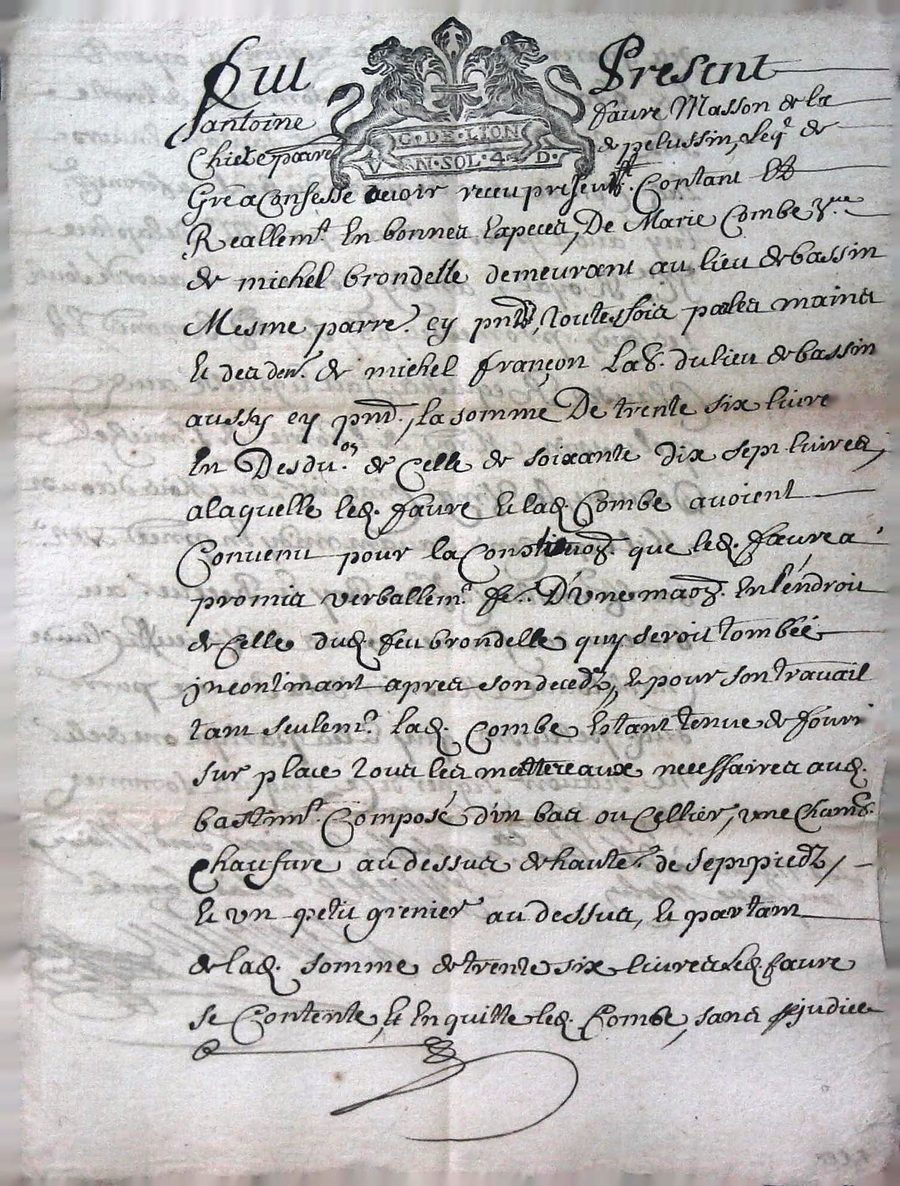 Fut Present
G·DE·LION
V N·SOL·4 D·
antoine faure Masson de la
de pelussin, leql. de
Gré a Confesse avoir receu Contant Et
Reallemt. En bonnes Especes, De Marie Combe Vve
de michel brondelle demeurant au lieu de bassin
Mesme parre. cy pnte, toutesfois par les mains
Et des den. de michel françon Lab. du lieu de bassin
aussy cy pnt., la somme De trente six livre
En Desdu.on de Celle de soixante dix sept livres,
a laquelle led. faure Et lad. Combe avoient
Convenu pour la que led. faure a
promis verballemt. fe.. D'Une maon. En lendroit
de Celle dud. feu brondelle quy seroit tombée
jncontinant apres son decedz, Et pour son travail
tant seulemt. lad. Combe Estant tenue de fourr
sur place tous les mattereaux necessaires aud.
bastimt. Composé d'un bas ou Cellier, une Chamb.
Chaufure au dessus de haute. de sept piedz,
Et un petit grenier au dessus, Et partant
de lad. somme de trente six livres led. faure
se Contente, Et En quitte led. Combe, sans pjudice